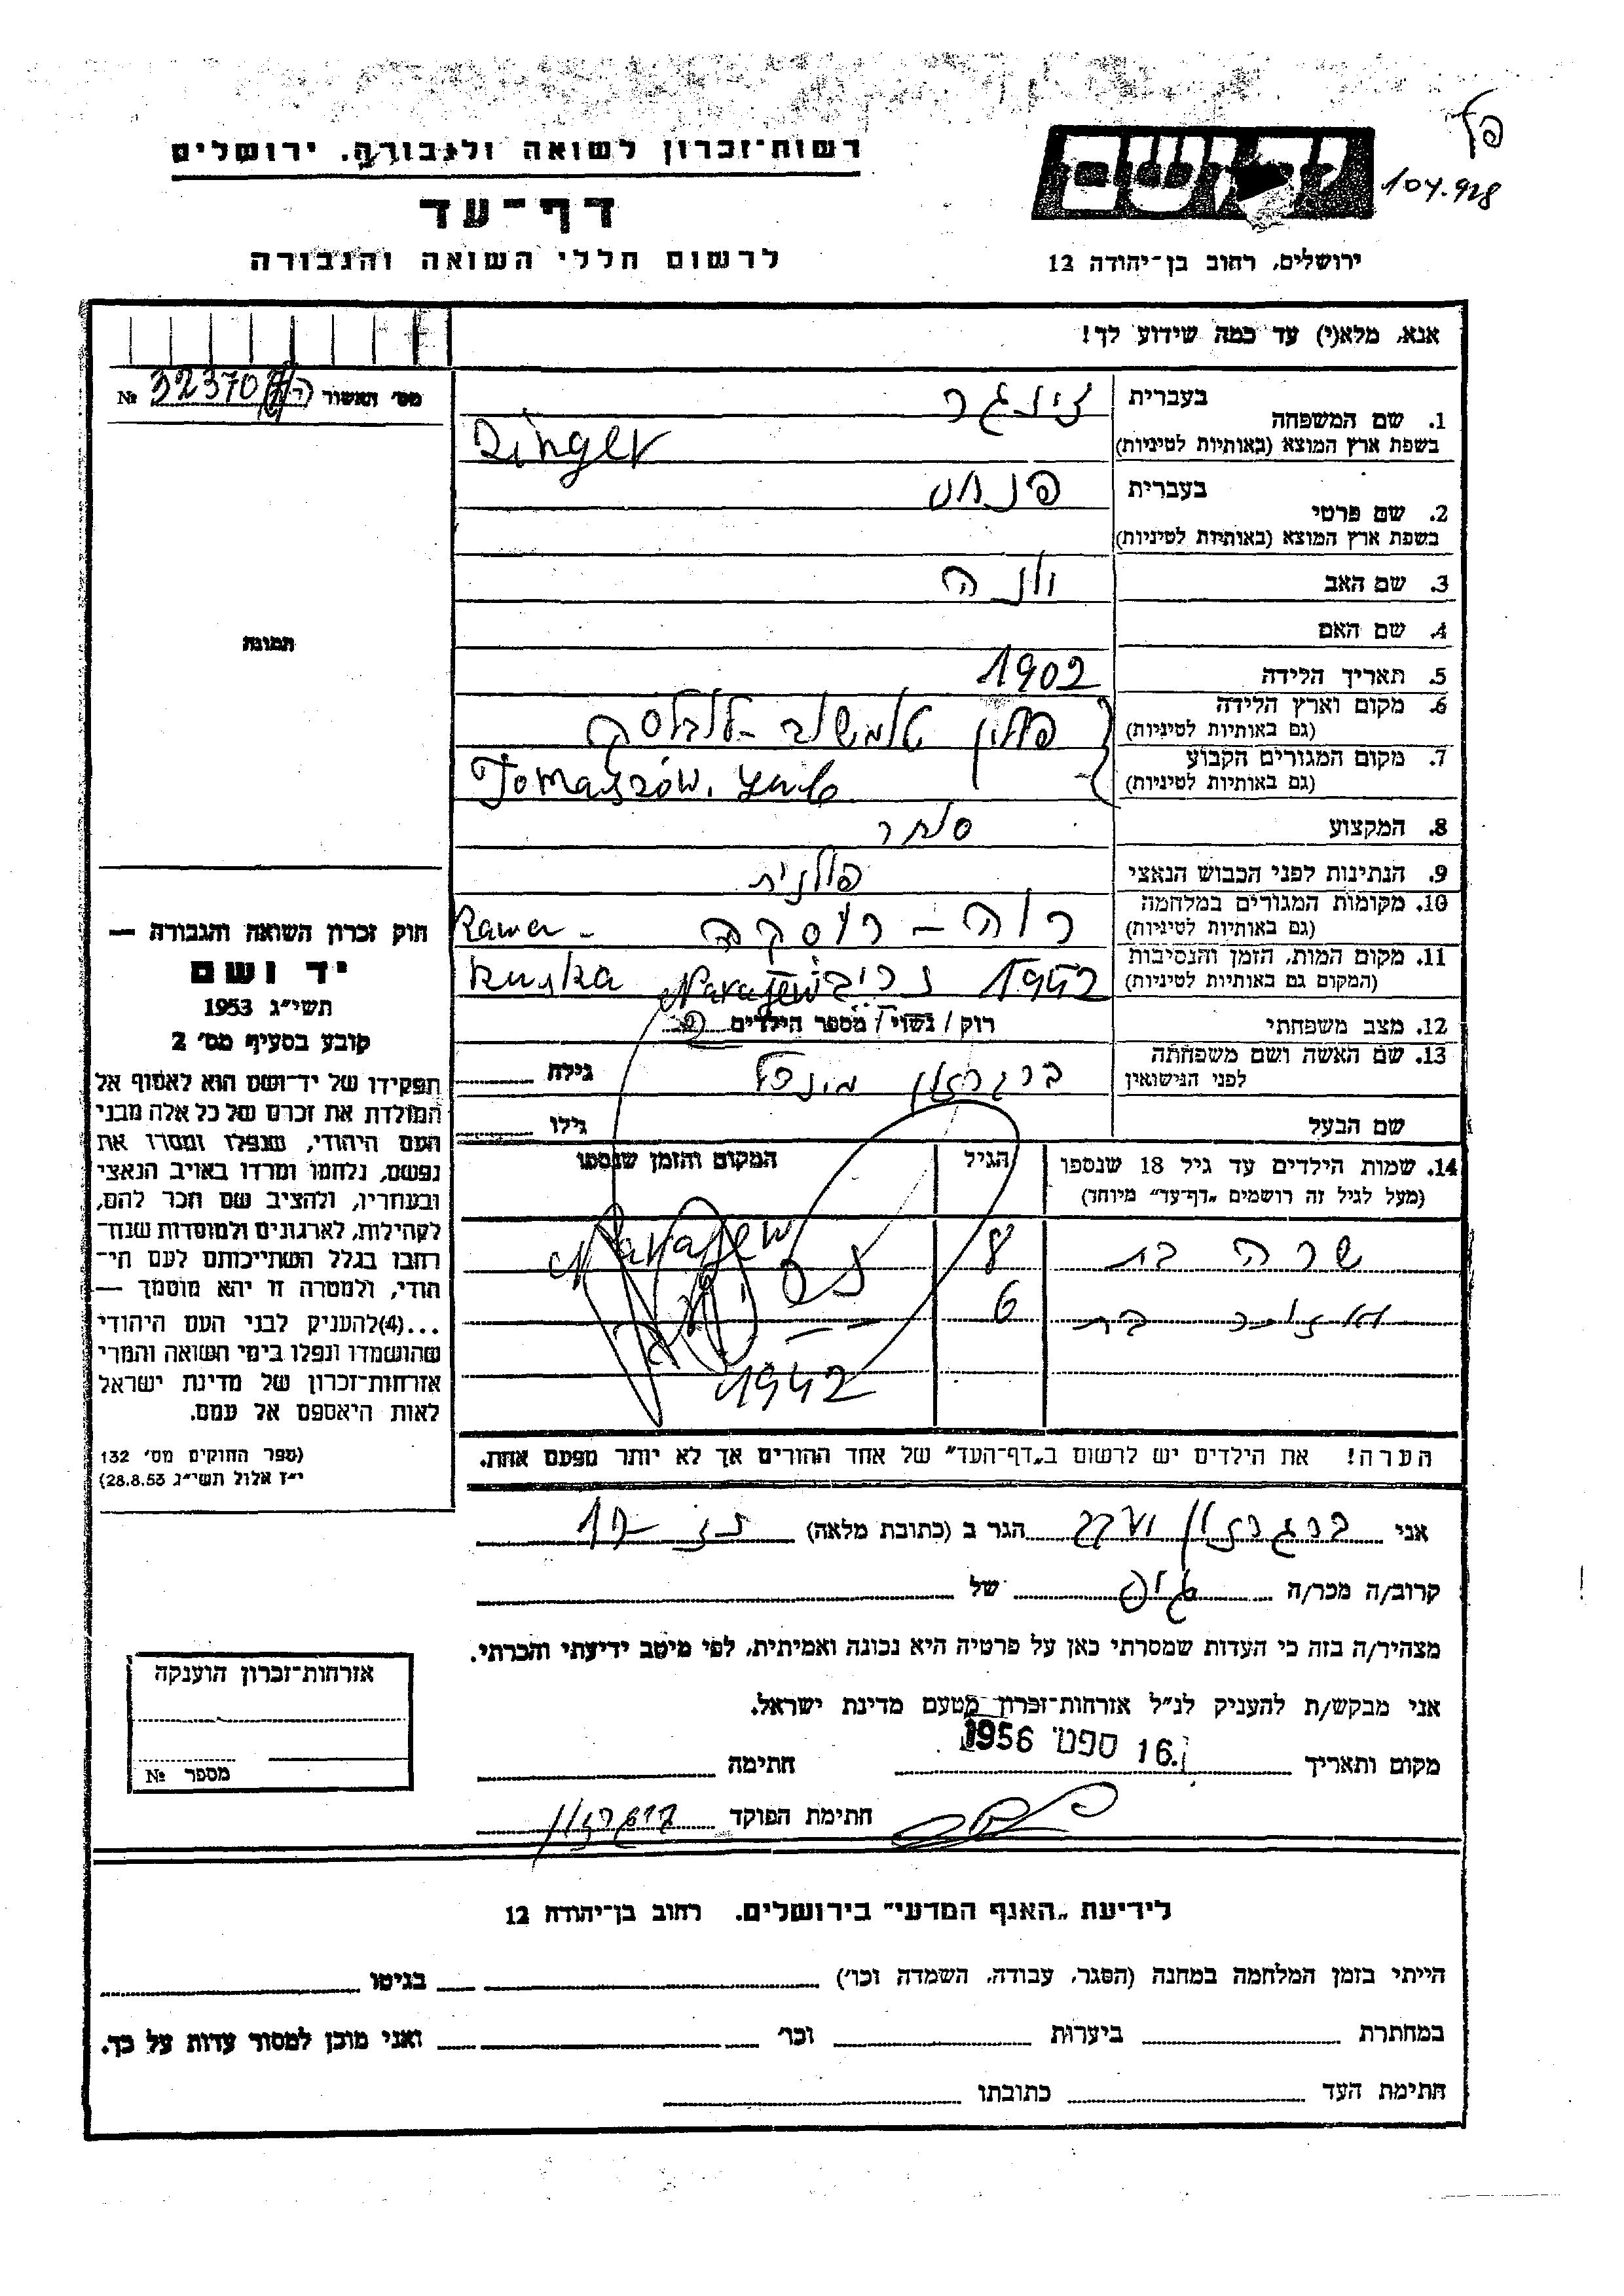 רשות־זכרון לשואה ולגבורה, ירושלים
דף־עד
לרשום חללי השואה והגבורה
ירושלים, רחוב בן־יהודה 12
104.928
אנא, מלא(י) עד כמה שידוע לך!
מס׳ האשור 32370 №
1. שם המשפחה
בעברית זינגר
בשפת ארץ המוצא (באותיות לטיניות) Zinger
2. שם פרטי
בעברית פנחס
בשפת ארץ המוצא (באותיות לטיניות)
3. שם האב יונה
4. שם האם
5. תאריך הלידה 1902
6. מקום וארץ הלידה
(גם באותיות לטיניות)
פולין טומשוב
7. מקום המגורים הקבוע
(גם באותיות לטיניות)
Tomaszów.
8. המקצוע סוחר
9. הנתינות לפני הכבוש הנאצי פולנית
10. מקומות המגורים במלחמה
(גם באותיות לטיניות)
רוה – רוסקה Rawa -
11. מקום המות, הזמן והנסיבות
(המקום גם באותיות לטיניות)
1942 Ruska
12. מצב משפחתי רוק / נשוי / מספר הילדים 2
13. שם האשה ושם משפחתה
לפני הנישואין
ברגרזון גילה
שם הבעל גילו
14. שמות הילדים עד גיל 18 שנספו
(מעל לגיל זה רושמים „דף־עד״ מיוחד)
הגיל
המקום והזמן שנספו
שרה בת 8
בת 6
1942
הערה! את הילדים יש לרשום ב„דף־העד״ של אחד ההורים אך לא יותר מפעם אחת.
תמונה
חוק זכרון השואה והגבורה —
יד ושם
תשי״ג 1953
קובע בסעיף מס׳ 2
תפקידו של יד־ושם הוא לאסוף אל
המולדת את זכרם של כל אלה מבני
העם היהודי, שנפלו ומסרו את
נפשם, נלחמו ומרדו באויב הנאצי
ובעוזריו, ולהציב שם וזכר להם,
לקהילות, לארגונים ולמוסדות שנח־
רבו בגלל השתייכותם לעם הי־
הודי, ולמטרה זו יהא מוסמך —
...(4) להעניק לבני העם היהודי
שהושמדו ונפלו בימי השואה והמרי
אזרחות־זכרון של מדינת ישראל
לאות היאספם אל עמם.
(ספר החוקים מס׳ 132
י״ז אלול תשי״ג 28.8.53)
אני ברגרזון יעקב הגר ב (כתובת מלאה)
קרוב/ה מכר/ה גיס של
מצהיר/ה בזה כי העדות שמסרתי כאן על פרטיה היא נכונה ואמיתית, לפי מיטב ידיעתי והכרתי.
אני מבקש/ת להעניק לנ״ל אזרחות־זכרון מטעם מדינת ישראל.
מקום ותאריך 16. ספט׳ 1956 חתימה
חתימת הפוקד ברגרזון
אזרחות־זכרון הוענקה
מספר №
לידיעת „האגף המדעי״ בירושלים. רחוב בן־יהודה 12
הייתי בזמן המלחמה במחנה (הסגר, עבודה, השמדה וכו׳) בגיטו
במחתרת ביערות וכו׳ ואני מוכן למסור עדות על כך.
חתימת העד כתובתו